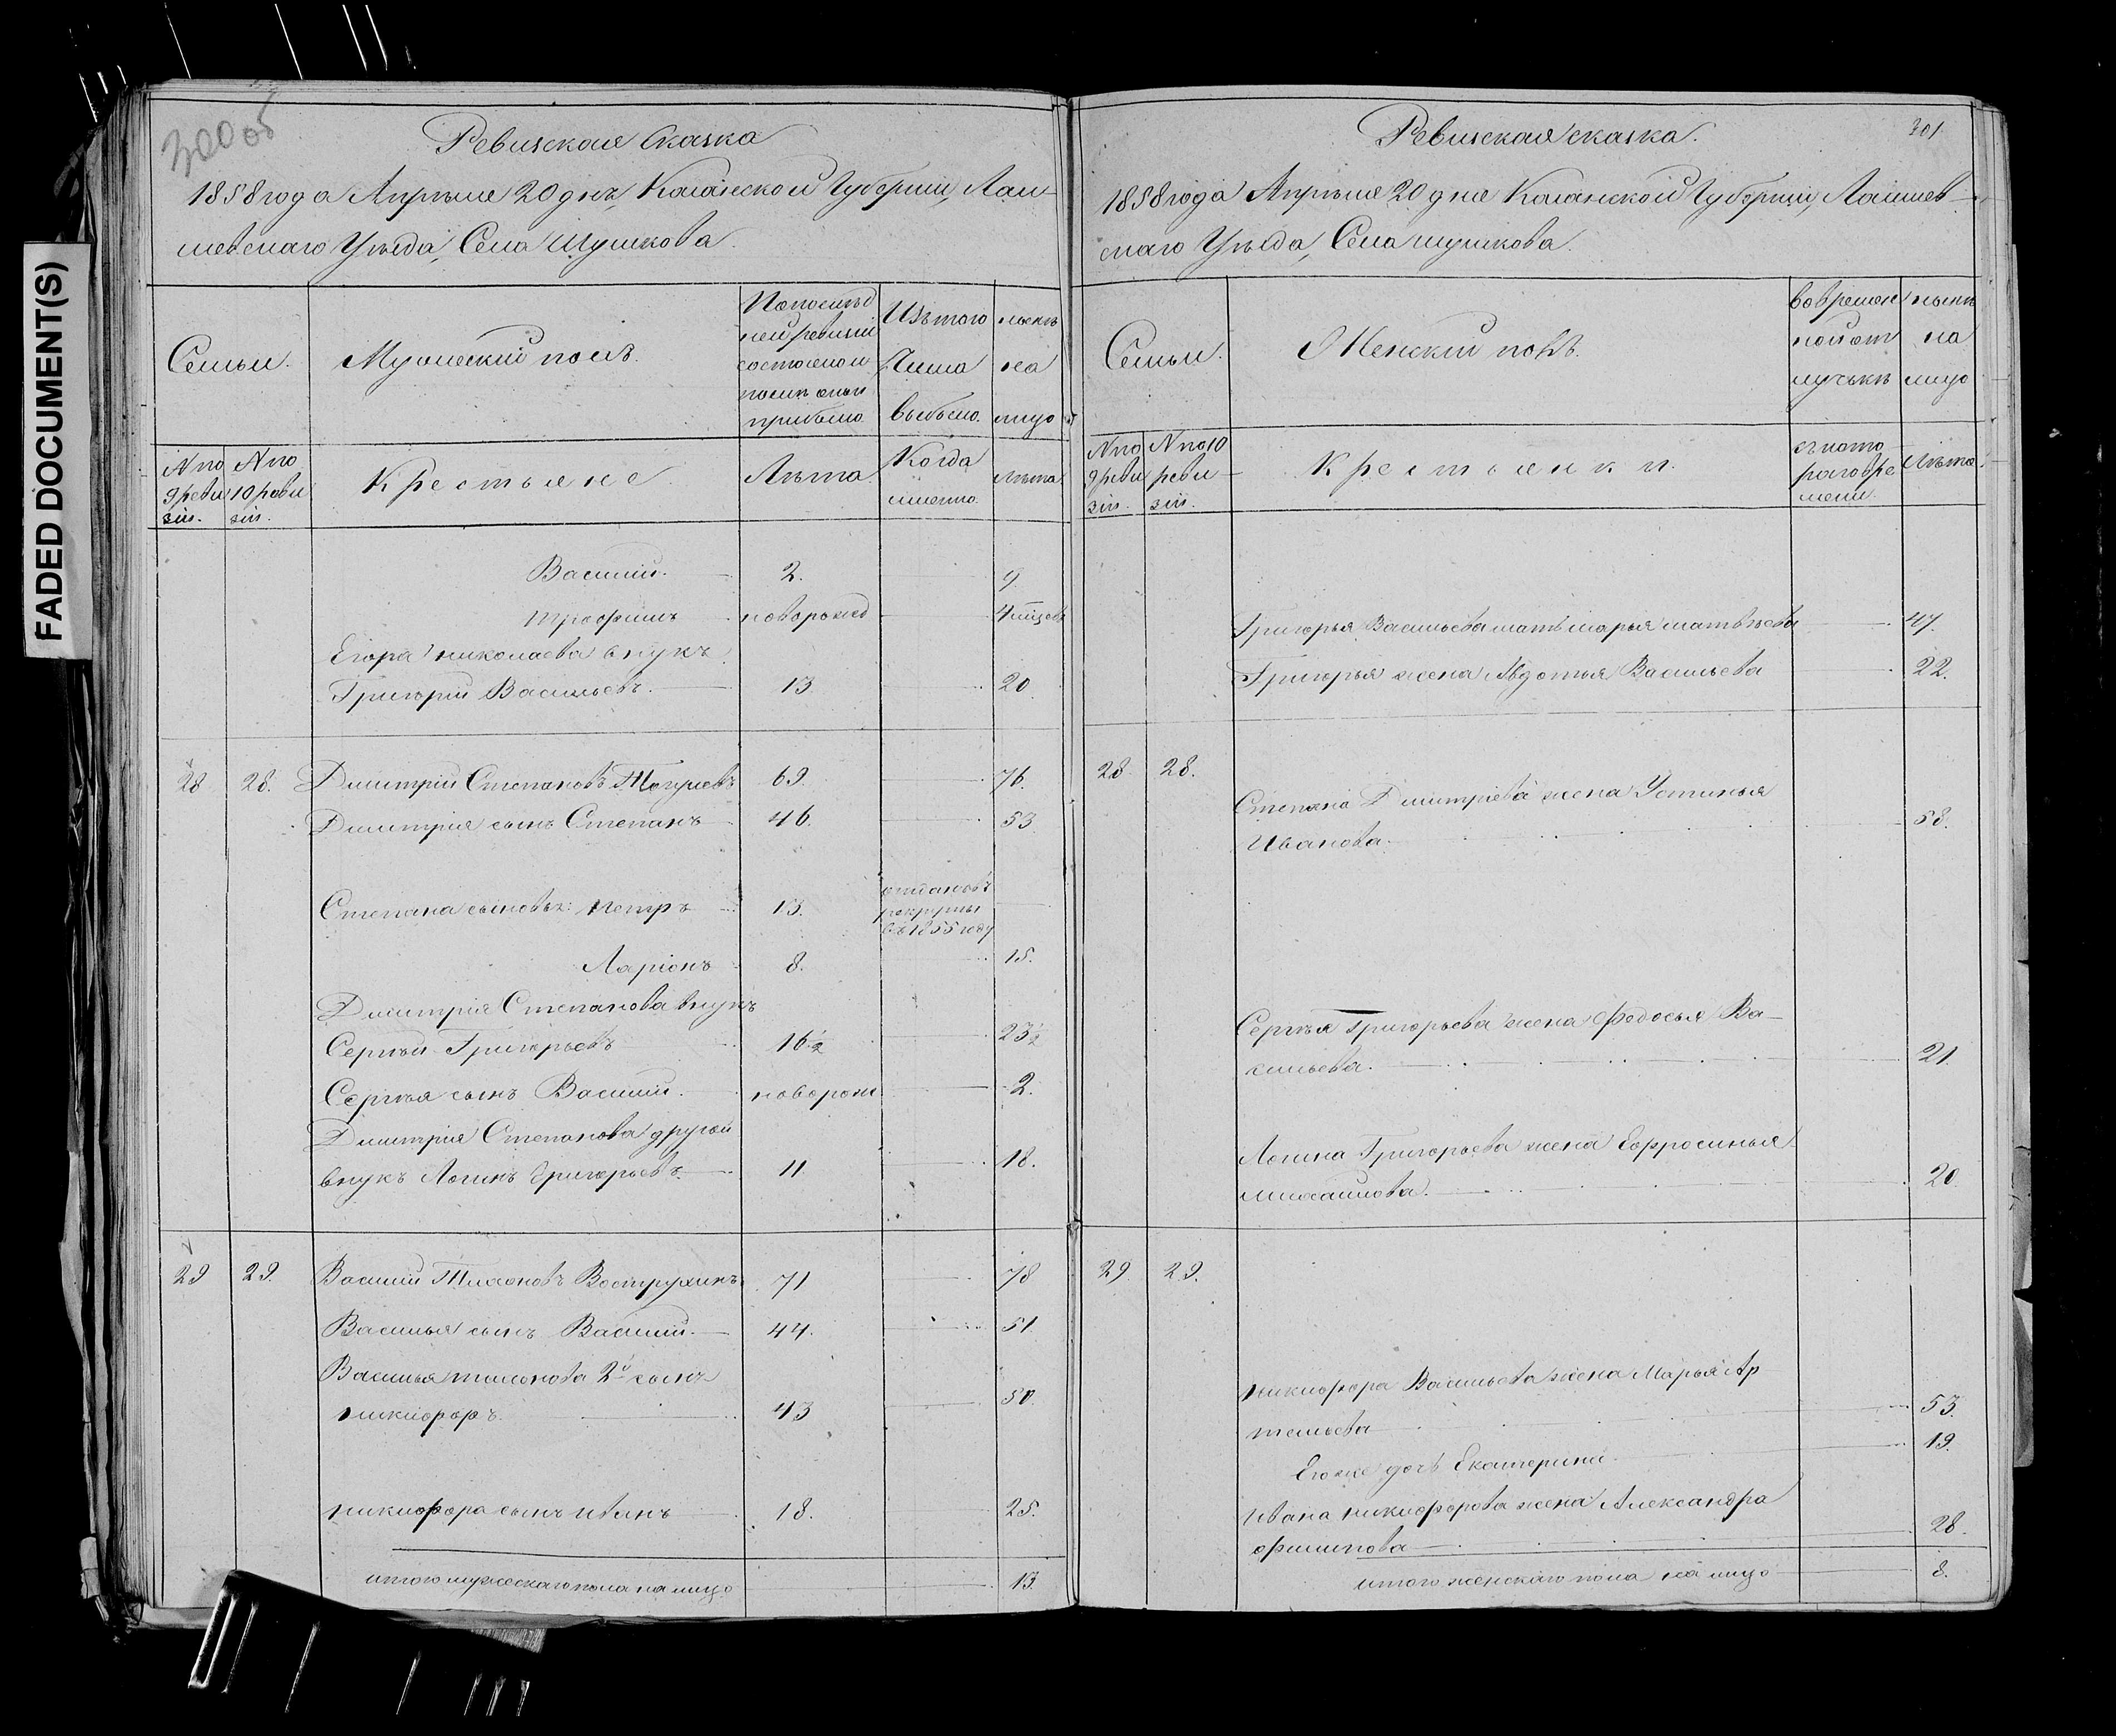 FADED DOCUMENT(S)
300 об
Ревизская Сказка
1858 года Апрѣля 20 дня, Казанской Губерніи, Лаи-
шевскаго Уѣзда, Села Шушкова.
Семьи.
Мужескій полъ.
По послѣд
ней ревизіи
состояло и
послѣ оной
прибыло
Изъ того
числа
выбыло.
нынѣ
на
лицо
№ по
9 реви
зіи.
№ по
10 реви
зіи.
Крестьяне
Лѣта.
Когда
именно.
Лѣта
Василій. 2. 9.
Трофимъ новорожд 4 мѣсцовъ
Егора Николаева внукъ
Григорій Васильевъ. 13 20.
28 28. Димитрій Степановъ 69. 76.
Димитрія сынъ Степанъ 46. 53
Степана сыновья: Петръ 13. отданъ въ
рекруты
въ 1855 году
Ларіонъ 8. 15.
Димитрія Степанова внукъ
Сергѣй Григорьевъ 16½ 23½
Сергѣя сынъ Василій. новорож 2.
Димитрія Степанова другой
внукъ Логинъ Григорьевъ. 11 18.
29 29. Василій Вострухинъ 71 78
Василья сынъ Василій. 44. 51
Василья 2й сынъ
Никифоръ. 43 50.
Никифора сынъ Иванъ 18. 25.
Итого мужескаго пола на лицо 13.
Ревизская сказка.
301
1858 года Апрѣля 20 дня Казанской Губерніи, Лаишев-
скаго Уѣзда, Села Шушкова.
Семьи.
Женскій полъ.
во времен
ной от
лучкѣ
нынѣ
на
лицо
№ по
9 реви
зіи.
№ по 10
реви
зіи.
Крестьянки.
съ кото
раго вре
мени.
Лѣта.
Григорья Васильева мать Марья Матвѣева 47.
Григорья жена Авдотья Васильева 22.
28 28.
Степана Димитріева жена Устинья
Иванова. 58.
Сергѣя Григорьева жена Федосья Ва-
сильева. 21.
Логина Григорьева жена Евфросинья
Михайлова. 20
29. 29.
Никифора Васильева жена Марья Ар
темьева 53.
Егоже дочь Екатерина 19.
Ивана Никифорова жена Александра
Филипова 28.
Итого женскаго пола на лицо 8.